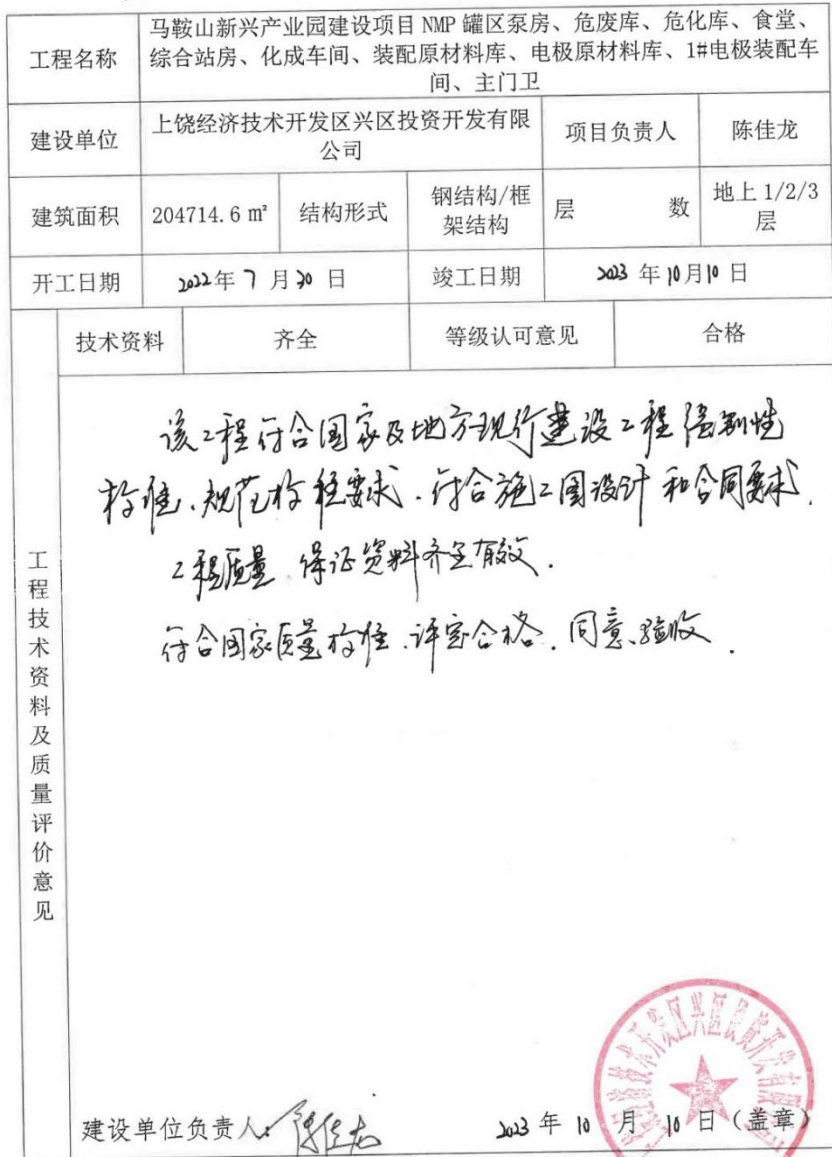 工程名称
马鞍山新兴产业园建设项目 NMP 罐区泵房、危废库、危化库、食堂、
综合站房、化成车间、装配原材料库、电极原材料库、1#电极装配车
间、主门卫
建设单位
上饶经济技术开发区兴区投资开发有限
公司
项目负责人
陈佳龙
建筑面积
204714.6 ㎡
结构形式
钢结构/框
架结构
层 数
地上 1/2/3
层
开工日期
2022年 7 月 30 日
竣工日期
2023 年 10 月 10 日
技术资料
齐全
等级认可意见
合格
工程技术资料及质量评价意见
该工程符合国家及地方现行建设工程强制性
标准、规范标准要求.符合施工图设计和合同要求.
工程质量 保证资料齐全有效.
符合国家质量标准.评定合格.同意验收.
建设单位负责人: 陈佳龙
2023 年 10 月 10 日（盖章）